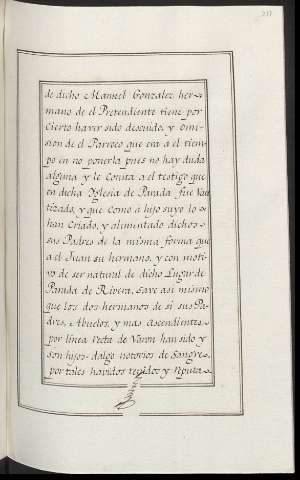 237
de dicho Manuel Gonzalez her-
mano de el Pretendiente tiene por
cierto haver sido descuido, y omi-
sion de el Parroco que era a el tiem-
po en no ponerla pues no hay duda
alguna y le Consta a el testigo que
en dicha Iglesia de Parada fue Vau
tizado, y que como a hijo suyo lo
han Criado, y alimentado dichos
sus Padres de la misma forma que
a el Juan su hermano, y con moti-
vo de ser natural de dicho Lugar de
Parada de Rivera, save asi mismo
que los dos hermanos de si sus Pa-
dres, Abuelos, y mas ascendientes
por linea recta de Varon han sido y
son hijos-dalgo notorios de Sangre
por tales havidos tenidos y reputa-